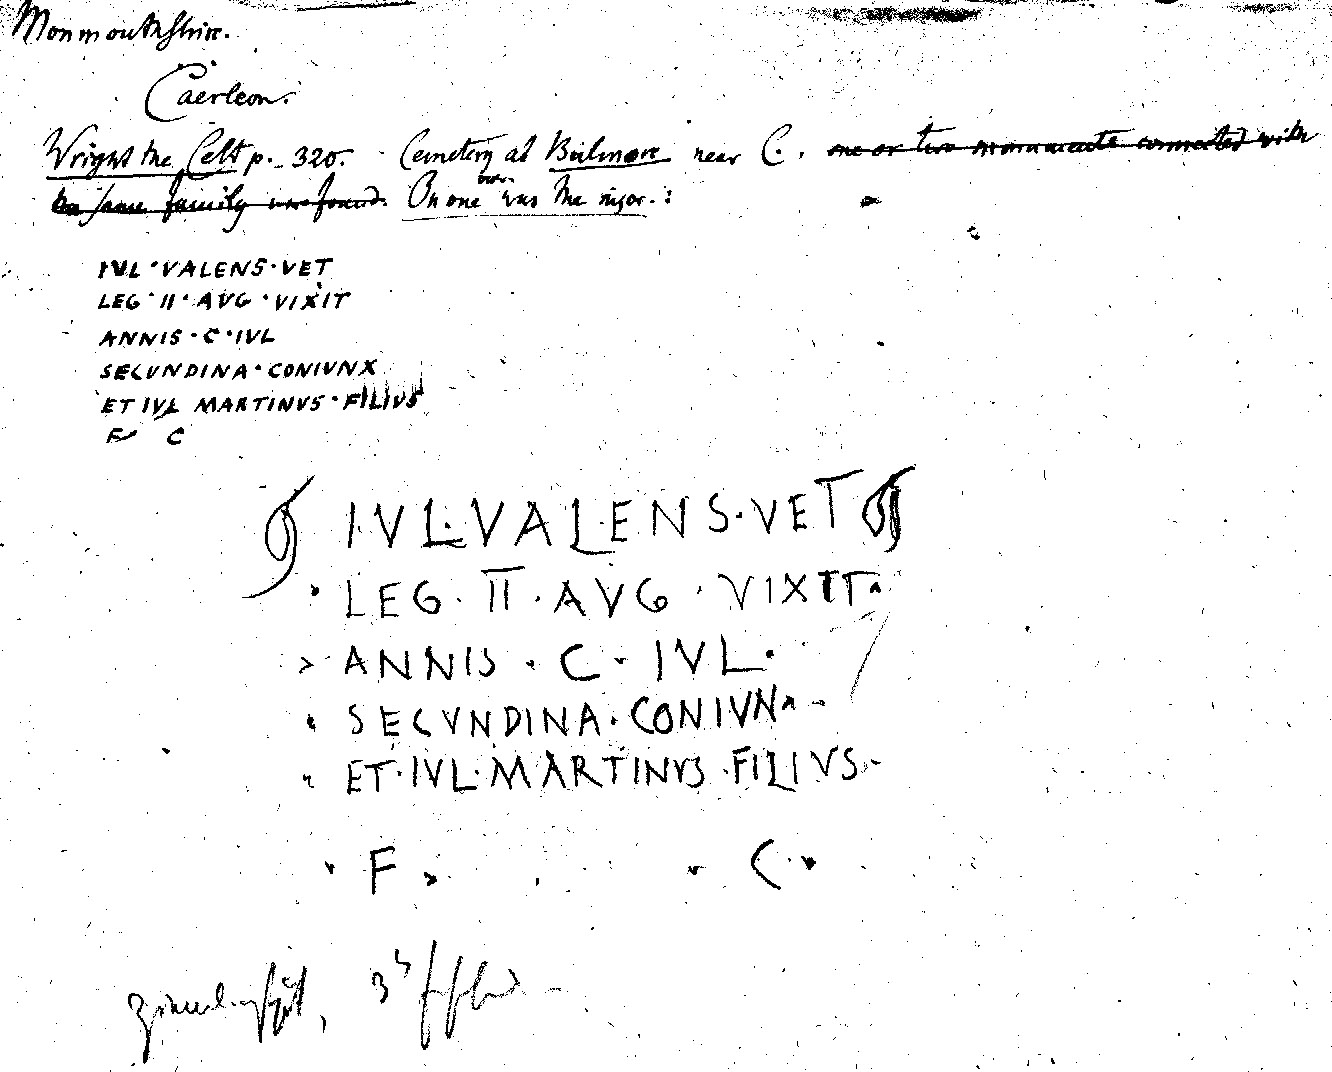 Monmouthshire.
Caerleon.
Wright the Celt p. 320. Cemetery at Bulmore near C. one or two monuments connected with
the same family were found. On one was the inscr. :
IVL · VALENS · VET
LEG · II · AVG · VIXIT
ANNIS · C · IVL
SECVNDINA · CONIVNX
ET IVL MARTINVS · FILIVS
F C
IVL · VALENS · VET
LEG · II · AVG · VIXIT
ANNIS · C · IVL ·
SECVNDINA · CONIVN
ET · IVL · MARTINVS · FILIVS
F C